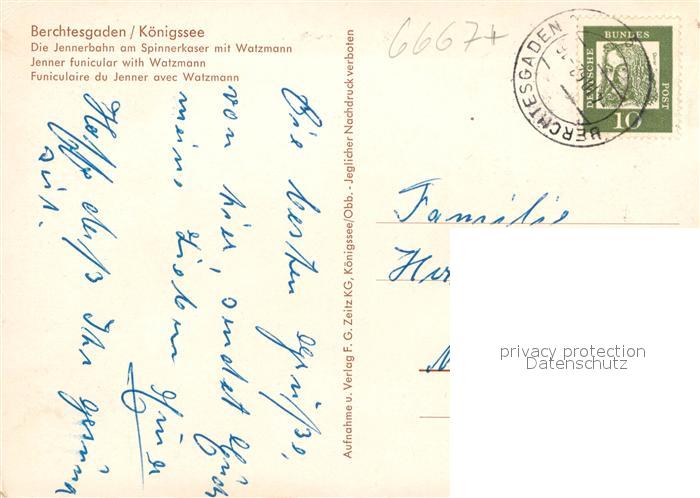 Berchtesgaden / Königssee
Die Jennerbahn am Spinnerkaser mit Watzmann
Jenner funicular with Watzmann
Funiculaire du Jenner avec Watzmann
6667+
BERCHTESGADEN
DEUTSCHE BUNDES POST
10
Aufnahme u. Verlag F. G. Zeitz KG, Königssee/Obb. - Jeglicher Nachdruck verboten
Die besten Grüße,
von hier, sendet Euch
meine lieben
Hoffe daß Ihr gesund
seit.
Familie
privacy protection
Datenschutz